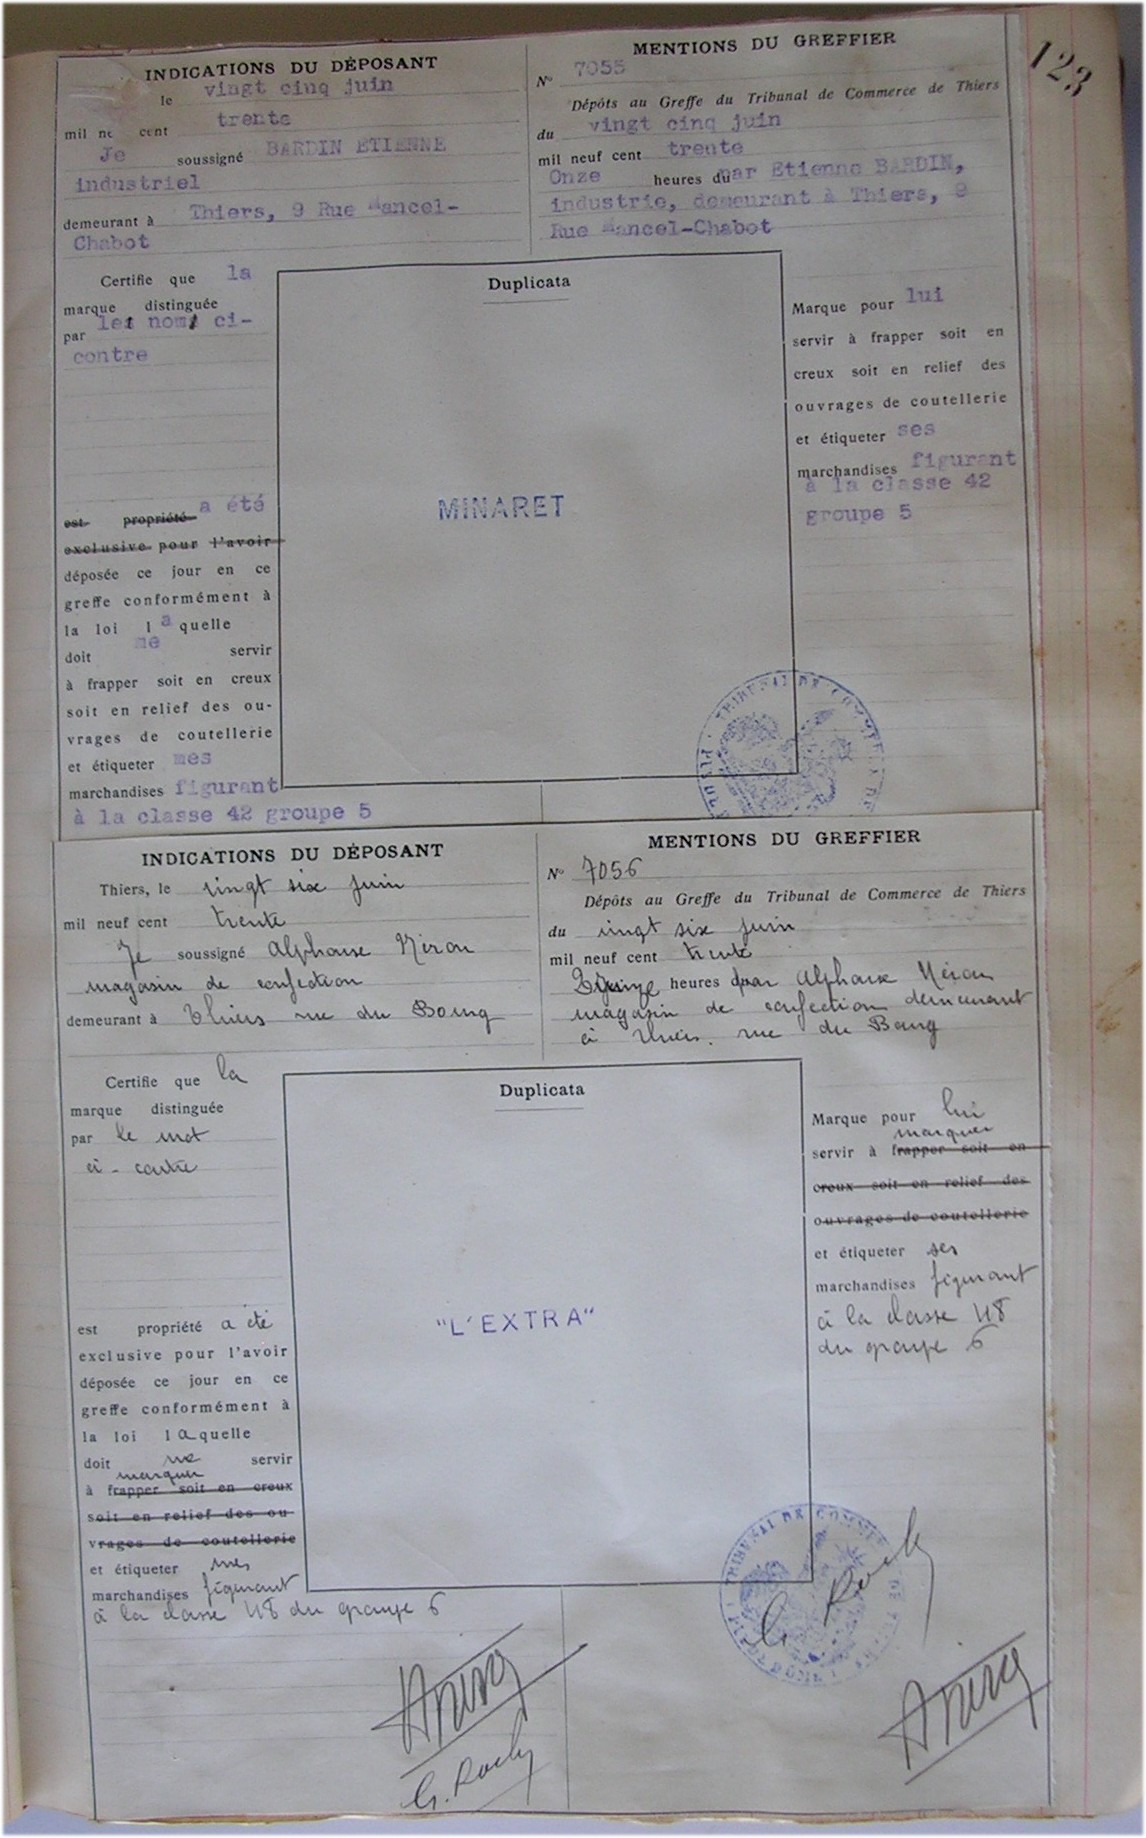 123
INDICATIONS DU DÉPOSANT
le vingt cinq juin
mil ne cent trente
Je soussigné BARDIN ETIENNE
industriel
demeurant à Thiers, 9 Rue Mancel-
Chabot
MENTIONS DU GREFFIER
N° 7055
Dépôts au Greffe du Tribunal de Commerce de Thiers
du vingt cinq juin
mil neuf cent trente
Onze heures du par Etienne BARDIN,
industrie, demeurant à Thiers, 9
Rue Mancel-Chabot
Certifie que la
marque distinguée
par les noms ci-
contre
est propriété a été
exclusive pour l'avoir
déposée ce jour en ce
greffe conformément à
la loi laquelle
doit me servir
à frapper soit en creux
soit en relief des ou-
vrages de coutellerie
et étiqueter mes
marchandises figurant
à la classe 42 groupe 5
Duplicata
MINARET
Marque pour lui
servir à frapper soit en
creux soit en relief des
ouvrages de coutellerie
et étiqueter ses
marchandises figurant
à la classe 42
groupe 5
TRIBUNAL DE COMMERCE DE
INDICATIONS DU DÉPOSANT
Thiers, le vingt six juin
mil neuf cent trente
Je soussigné Alphonse Néron
magasin de confection
demeurant à Thiers rue du Bourg
MENTIONS DU GREFFIER
N° 7056
Dépôts au Greffe du Tribunal de Commerce de Thiers
du vingt six juin
mil neuf cent trente
Quinze heures par Alphonse Néron
magasin de confection demeurant
à Thiers. rue du Bourg
Certifie que la
marque distinguée
par le mot
ci-contre
est propriété a été
exclusive pour l'avoir
déposée ce jour en ce
greffe conformément à
la loi laquelle
doit me servir
marquer
à frapper soit en creux
soit en relief des ou-
vrages de coutellerie
et étiqueter mes
marchandises figurant
à la classe 48 du groupe 6
Duplicata
"L'EXTRA"
Marque pour lui
marquer
servir à frapper soit en
creux soit en relief des
ouvrages de coutellerie
et étiqueter ses
marchandises figurant
à la classe 48
du groupe 6
TRIBUNAL DE COMMERCE DE THIERS